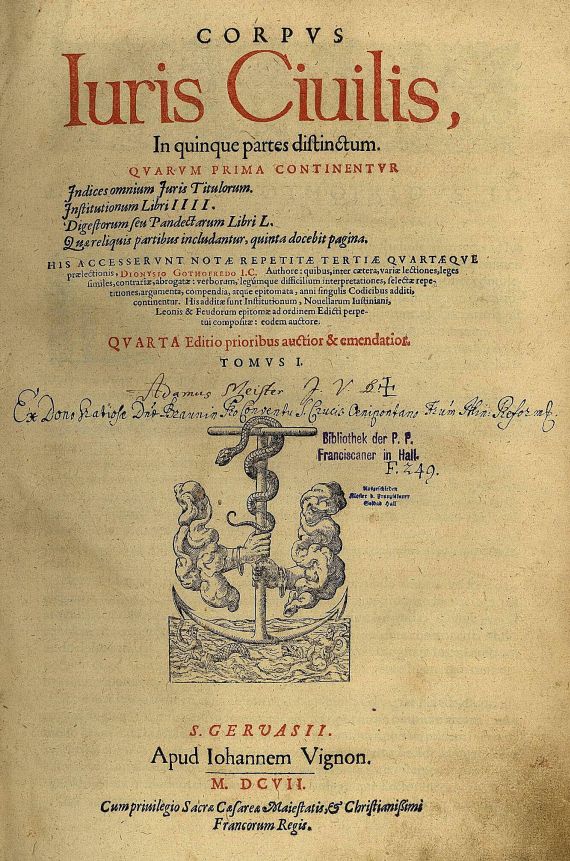 CORPVS
Iuris Ciuilis,
In quinque partes distinctum.
QVARVM PRIMA CONTINENTVR
Indices omnium Iuris Titulorum.
Institutionum Libri IIII.
Digestorum seu Pandectarum Libri L.
Quæ reliquis partibus includantur, quinta docebit pagina.
HIS ACCESSERVNT NOTÆ REPETITÆ TERTIÆ QVARTÆQVE
prælectionis, DIONYSIO GOTHOFREDO I.C. Authore: quibus, inter cætera, variæ lectiones, leges
similes, contrariæ, abrogatæ: verborum, legúmque difficilium interpretationes, selectæ repe-
titiones, argumenta, compendia, atque epitomata, anni singulis Codicibus additi,
continentur. His additæ sunt Institutionum, Nouellarum Iustiniani,
Leonis & Feudorum epitomæ ad ordinem Edicti perpe-
tui compositæ: eodem auctore.
QVARTA Editio prioribus auctior & emendatior.
TOMVS I.
Adamus Meister J. V.
Ex Dono Conventu S. Crucis Reform
Bibliothek der P. P.
Franciscaner in Hall.
F. 249.
Ausgeschieden
Kloster d. Franziskaner
Solbad Hall
S. GERVASII.
Apud Iohannem Vignon.
M. DCVII.
Cum priuilegio Sacræ Cæsareæ Maiestatis, & Christianißimi
Francorum Regis.